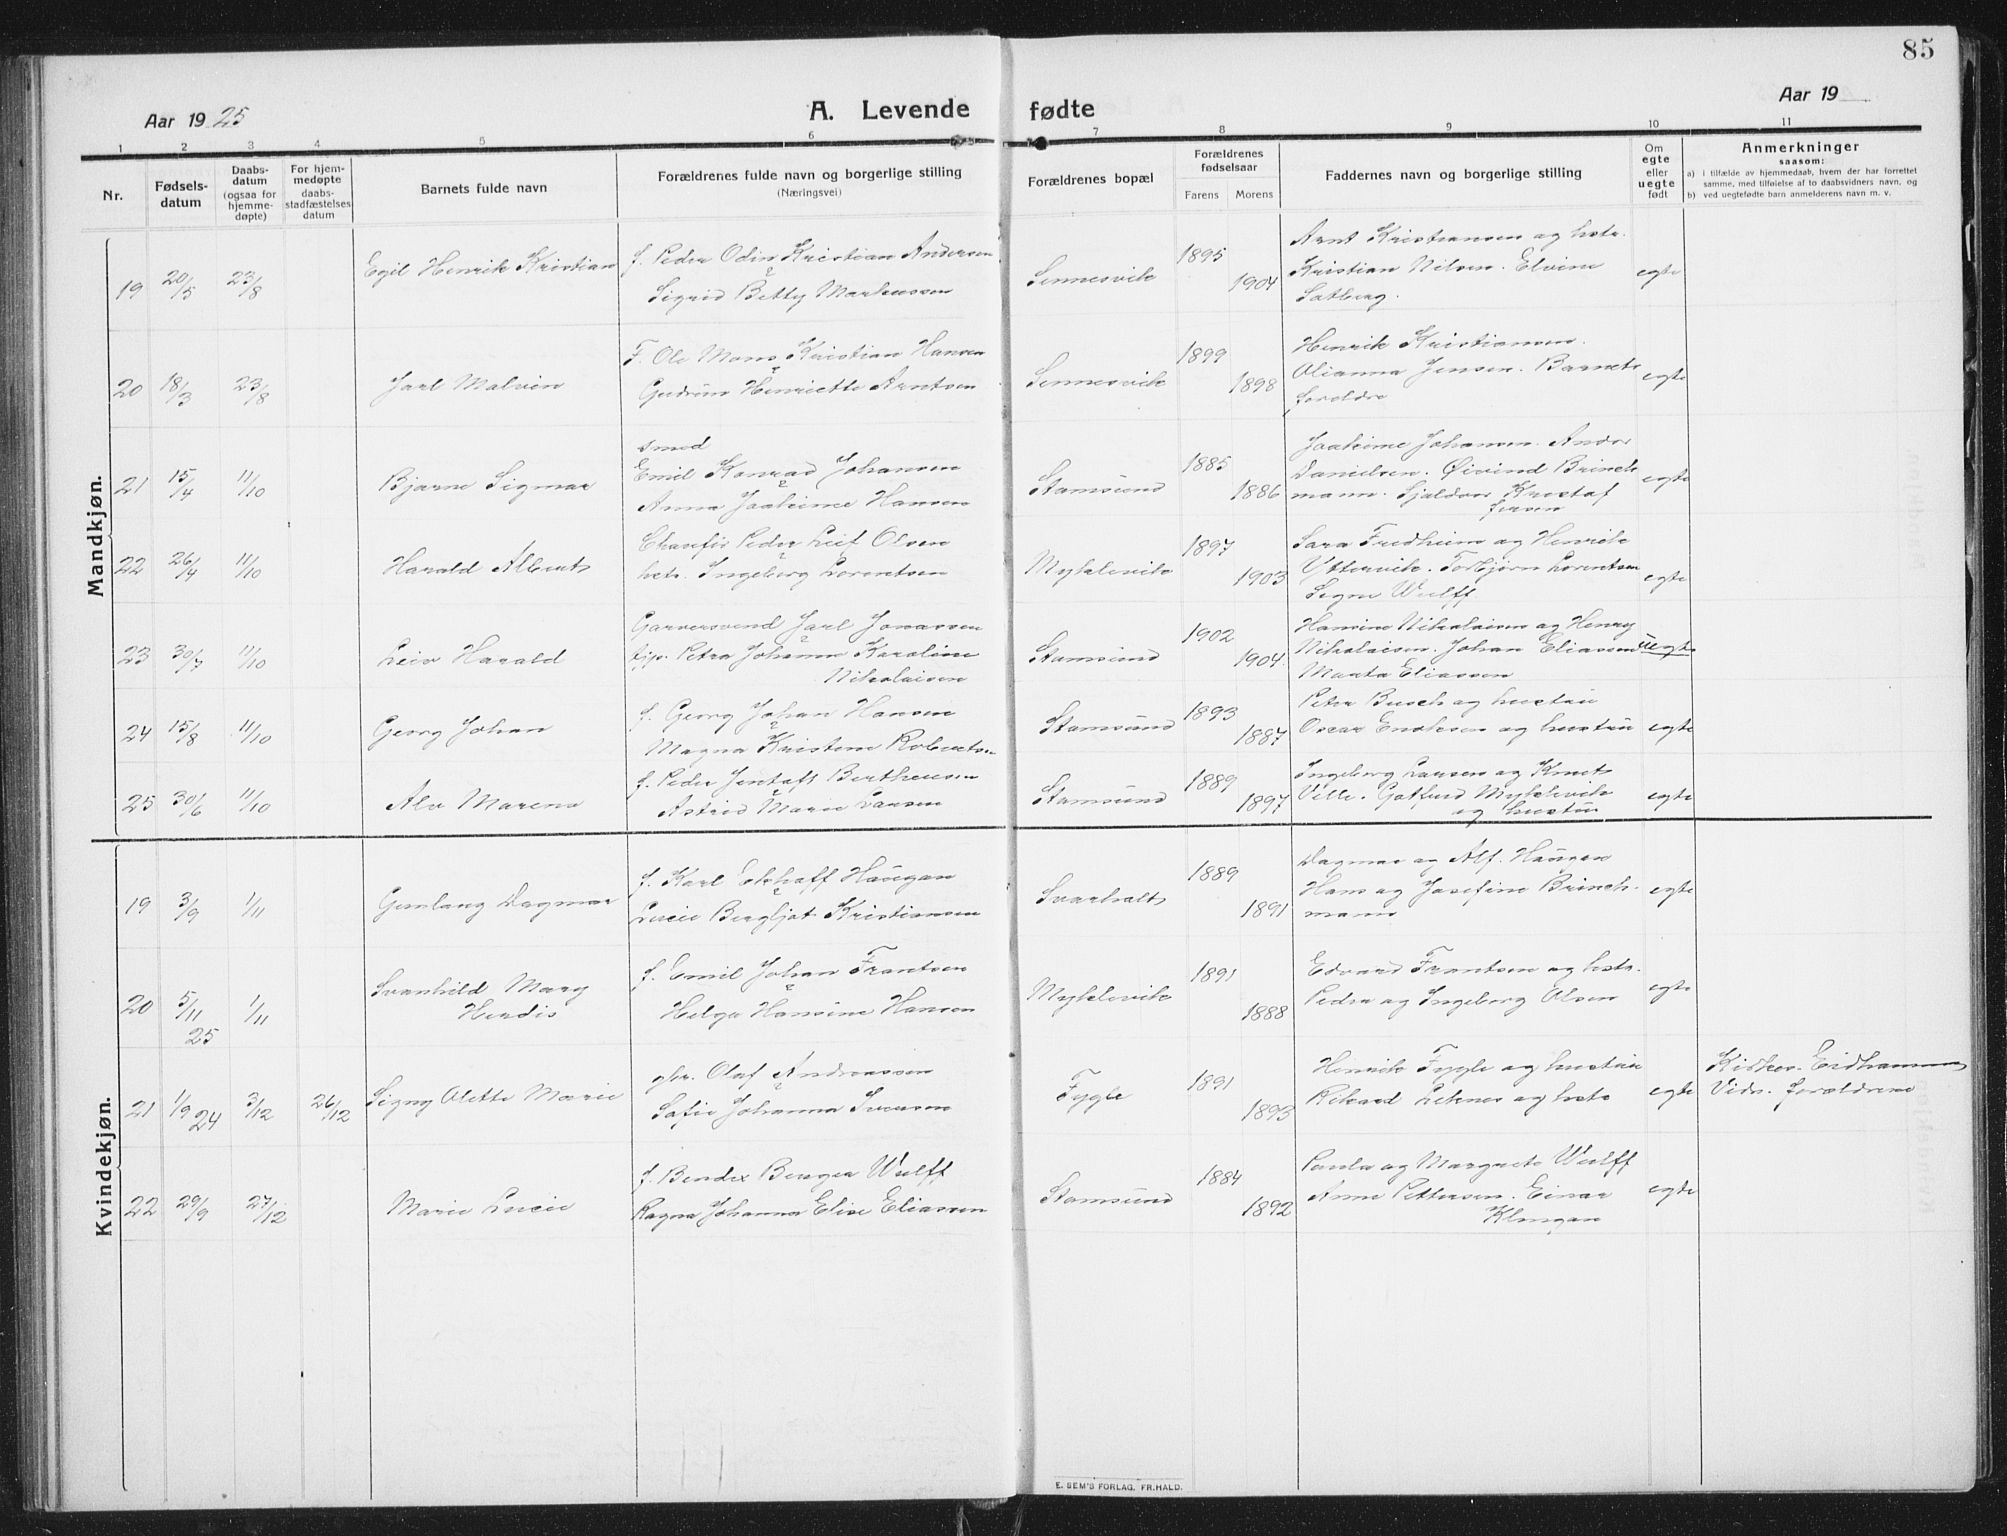 85
Aar 1925
A. Levende fødte
Aar 19
1 2 3 4 5 6 7 8 9 10 11
Nr.
Fødsels-
datum
Daabs-
datum
(ogsaa for
hjemme-
døpte)
For hjem-
medøpte
daabs-
stadfæstelses
datum
Barnets fulde navn
Forældrenes fulde navn og borgerlige stilling
(Næringsvei)
Forældrenes bopæl
Forældrenes
fødselsaar
Farens Morens
Faddernes navn og borgerlige stilling
Om
egte
eller
uegte
født
Anmerkninger
saasom:
a) i tilfælde av hjemmedaab, hvem der har forrettet
samme, med tilføielse af to daabsvidners navn, og
b) ved uegtefødte barn anmelderens navn m. v.
Mandkjøn.
19 20/5 23/8
Egil Henrik Kristian
f. Peder Odin Kristian Andersen
Sigrid Betty Markussen
Sennesvik
1895
1904
Arnt Kristiansen og hstr.
Kristian Nilsen. Elvine
Satberg.
egte
20 18/3 23/8
Jarl Malvin
F. Ole Mons Kristian Hansen
Gudrun Henriette Arntsen
Sennesvik
1899
1898
Henrik Kristiansen.
Olianna Jensen. Barnets
foreldre
egte
21 15/4 11/10
Bjarne Sigmar
smed
Emil Konrad Johansen
Anna Joakime Hansen
Stamsund
1885
1886
Joakime Johansen. Andor
Danielsen. Øivind Brinch
mann. Sjaldvor Kristof
fersen
egte
22 26/4 11/10
Harald Albert
Chaufør Peder Leif Olsen
hstr. Ingeborg Lorentsen
Myklevik
1897
1903
Sara Fredheim og Henrik
Yttervik. Torbjørn Lorentsen
Signe Wulff
egte
23 30/7 11/10
Leiv Harald
Garversvend Jarl Jonassen
tjp. Petra Johanna Karoline
Nikolaisen
Stamsund
1902
1904.
Hansine Nikolaisen og Henry
Nikolaisen. Johan Eliassen
Marta Eliassen
uegte
24 15/8 11/10
Georg Johan
f. Georg Johan Hansen
Magna Kristine Robertsen
Stamsund
1893
1887
Peter Busch og hustru
Oscar Enoksen og hustru
egte
25 30/6 11/10
Alv Mareno
f. Peder Jentoft Bertheussen
Astrid Marie Larsen
Stamsund
1889
1897
Ingeborg Larsen og Knut
Ville. Gotfred Myklevik
og hustru
egte
Kvindekjøn.
19 3/9 1/11
Gunlaug Dagmar
f. Karl Ekhoff Haugan
Lucie Bergljot Kristiansen
Svarholt
1889
1891
Dagmar og Alf. Haugen
Hans og Josefine Brinch-
mann
egte
20 5/11 25 1/11
Svanhild Mary
Herdis
f. Emil Johan Frantsen
Helga Hansine Hansen
Myklevik
1891
1888
Edvard Frantsen og hstr.
Pedra og Ingeborg Olsen
egte
21 1/9 24 3/12 26/12
Signy Olette Marie
gbr. Olaf Andreassen
Sofie Johanna Svensen
Fygle
1891
1893
Henrik Fygle og hustru
Rikard Leknes og hstr
egte
Eidhammer
Vidn. forældrene
22 29/9 27/12
Marie Lucie
f. Bendix Berger Wulff
Ragna Johanna Elise Eliassen
Stamsund
1884
1892
Paula og Margrete Wulff
Anne Pettersen. Einar
Klungan
egte
E. SEM'S FORLAG, FR.HALD.